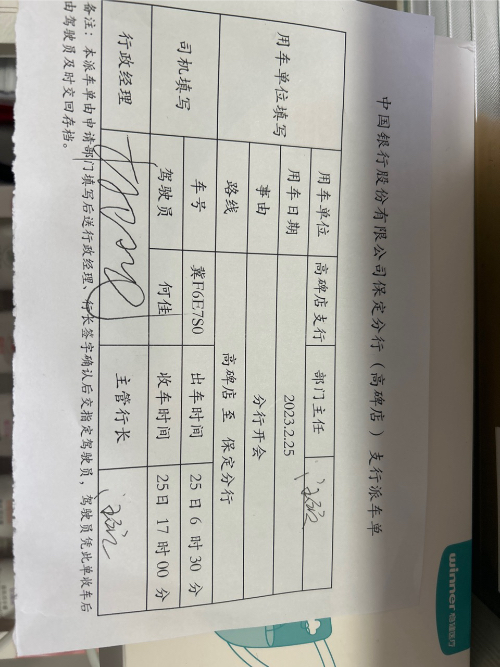 中国银行股份有限公司保定分行（高碑店）支行派车单
用车单位填写 用车单位 高碑店支行 部门主任
用车日期 2023.2.25
事由 分行开会
路线 高碑店 至 保定分行
司机填写 车号 冀F6E780 出车时间 25 日 6 时 30 分
驾驶员 何佳 收车时间 25 日 17 时 00 分
行政经理 主管行长
备注：本派车单由申请部门填写后送行政经理、行长签字确认后交指定驾驶员，驾驶员凭此单收车后
由驾驶员及时交回存档。
winner